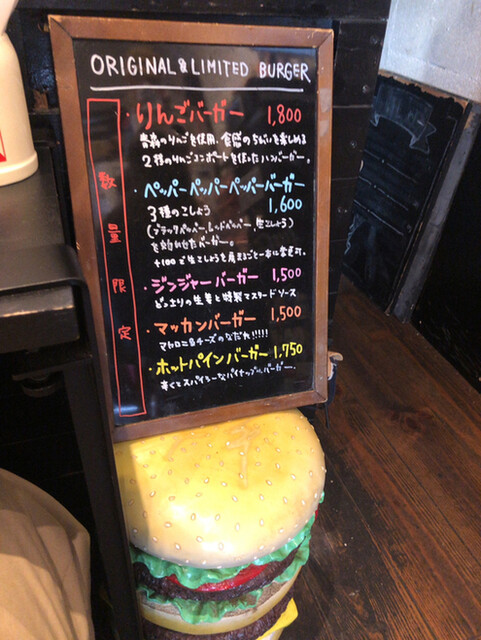 ORIGINAL & LIMITED BURGER
数量限定
・りんごバーガー 1,800
青森のりんごを使用、食感のちがいを楽しめる
2種のりんごコンポートを使ったハンバーガー。
・ペッパーペッパーペッパーバーガー
1,600
3種のこしょう
(ブラックペッパー、レッドペッパー、生こしょう)
を効かせたバーガー。
+100で生こしょうを
・ジンジャーバーガー 1,500
どっさりの生姜と特製マスタードソース
・マッカンバーガー 1,500
マカロニ&チーズのなだれ!!!!!
・ホットパインバーガー 1,750
辛くてスパイシーなパイナップルバーガー。